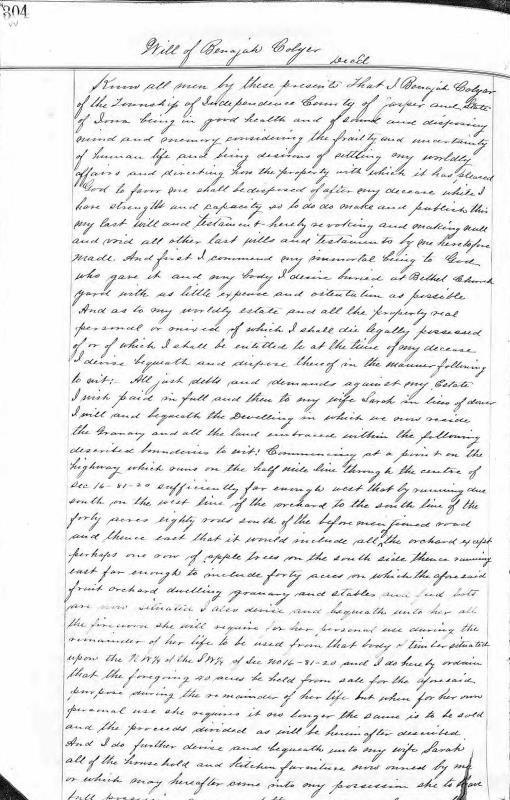 304
Will of Benajah Colyer
Decd
Know all men by these presents That I Benajah Colyer
of the Township of Independence County of jasper and State
of Iowa being in good health and of sound and disposing
mind and memory considering the frailty and uncertainty
of human life and being desirous of settling my worldly
affairs and directing how the property with which it has pleased
God to favor me shall be disposed of after my decease while I
have strength and capacity so to do do make and publish this
my last will and testament hereby revoking and making null
and void all other last wills and testaments by me heretofore
made. And first I commend my immortal being to God
who gave it and my body I desire buried at Bethel Church
yard with as little expense and ostentation as possible
And as to my worldly estate and all the property real
personal or mixed of which I shall die legally possessed
of or of which I shall be entitled to at the time of my decease
I devise bequeath and dispose thereof in the manner following
to wit: All just debts and demands against my Estate
I wish paid in full and then to my wife Sarah in lieu of dower
I will and bequeath the Dwelling in which we now reside
the Granary and all the land embraced within the following
described boundaries to wit: Commencing at a point on the
highway which runs on the half mile line through the centre of
Sec 16-81-20 sufficiently far enough west that by running due
south on the west line of the orchard to the south line of the
forty acres eighty rods south of the before mentioned road
and thence east that it would include all the orchard except
perhaps one row of apple trees on the south side thence running
east far enough to include forty acres on which the aforesaid
fruit orchard dwelling granary and stables and feed lots
are now situated I also devise and bequeath unto her all
the firewood she will require for her personal use during the
remainder of her life to be used from that body of timber situated
upon the N W¼ of the S W¼ of Sec No 16-81-20 and I do hereby ordain
that the foregoing 40 acres be held from sale for the aforesaid
purpose during the remainder of her life but when for her own
personal use she requires it no longer the same is to be sold
and the proceeds divided as will be hereinafter described
And I do further devise and bequeath unto my wife Sarah
all of the household and kitchen furniture now owned by me
or which may hereafter come into my possession she to have
full